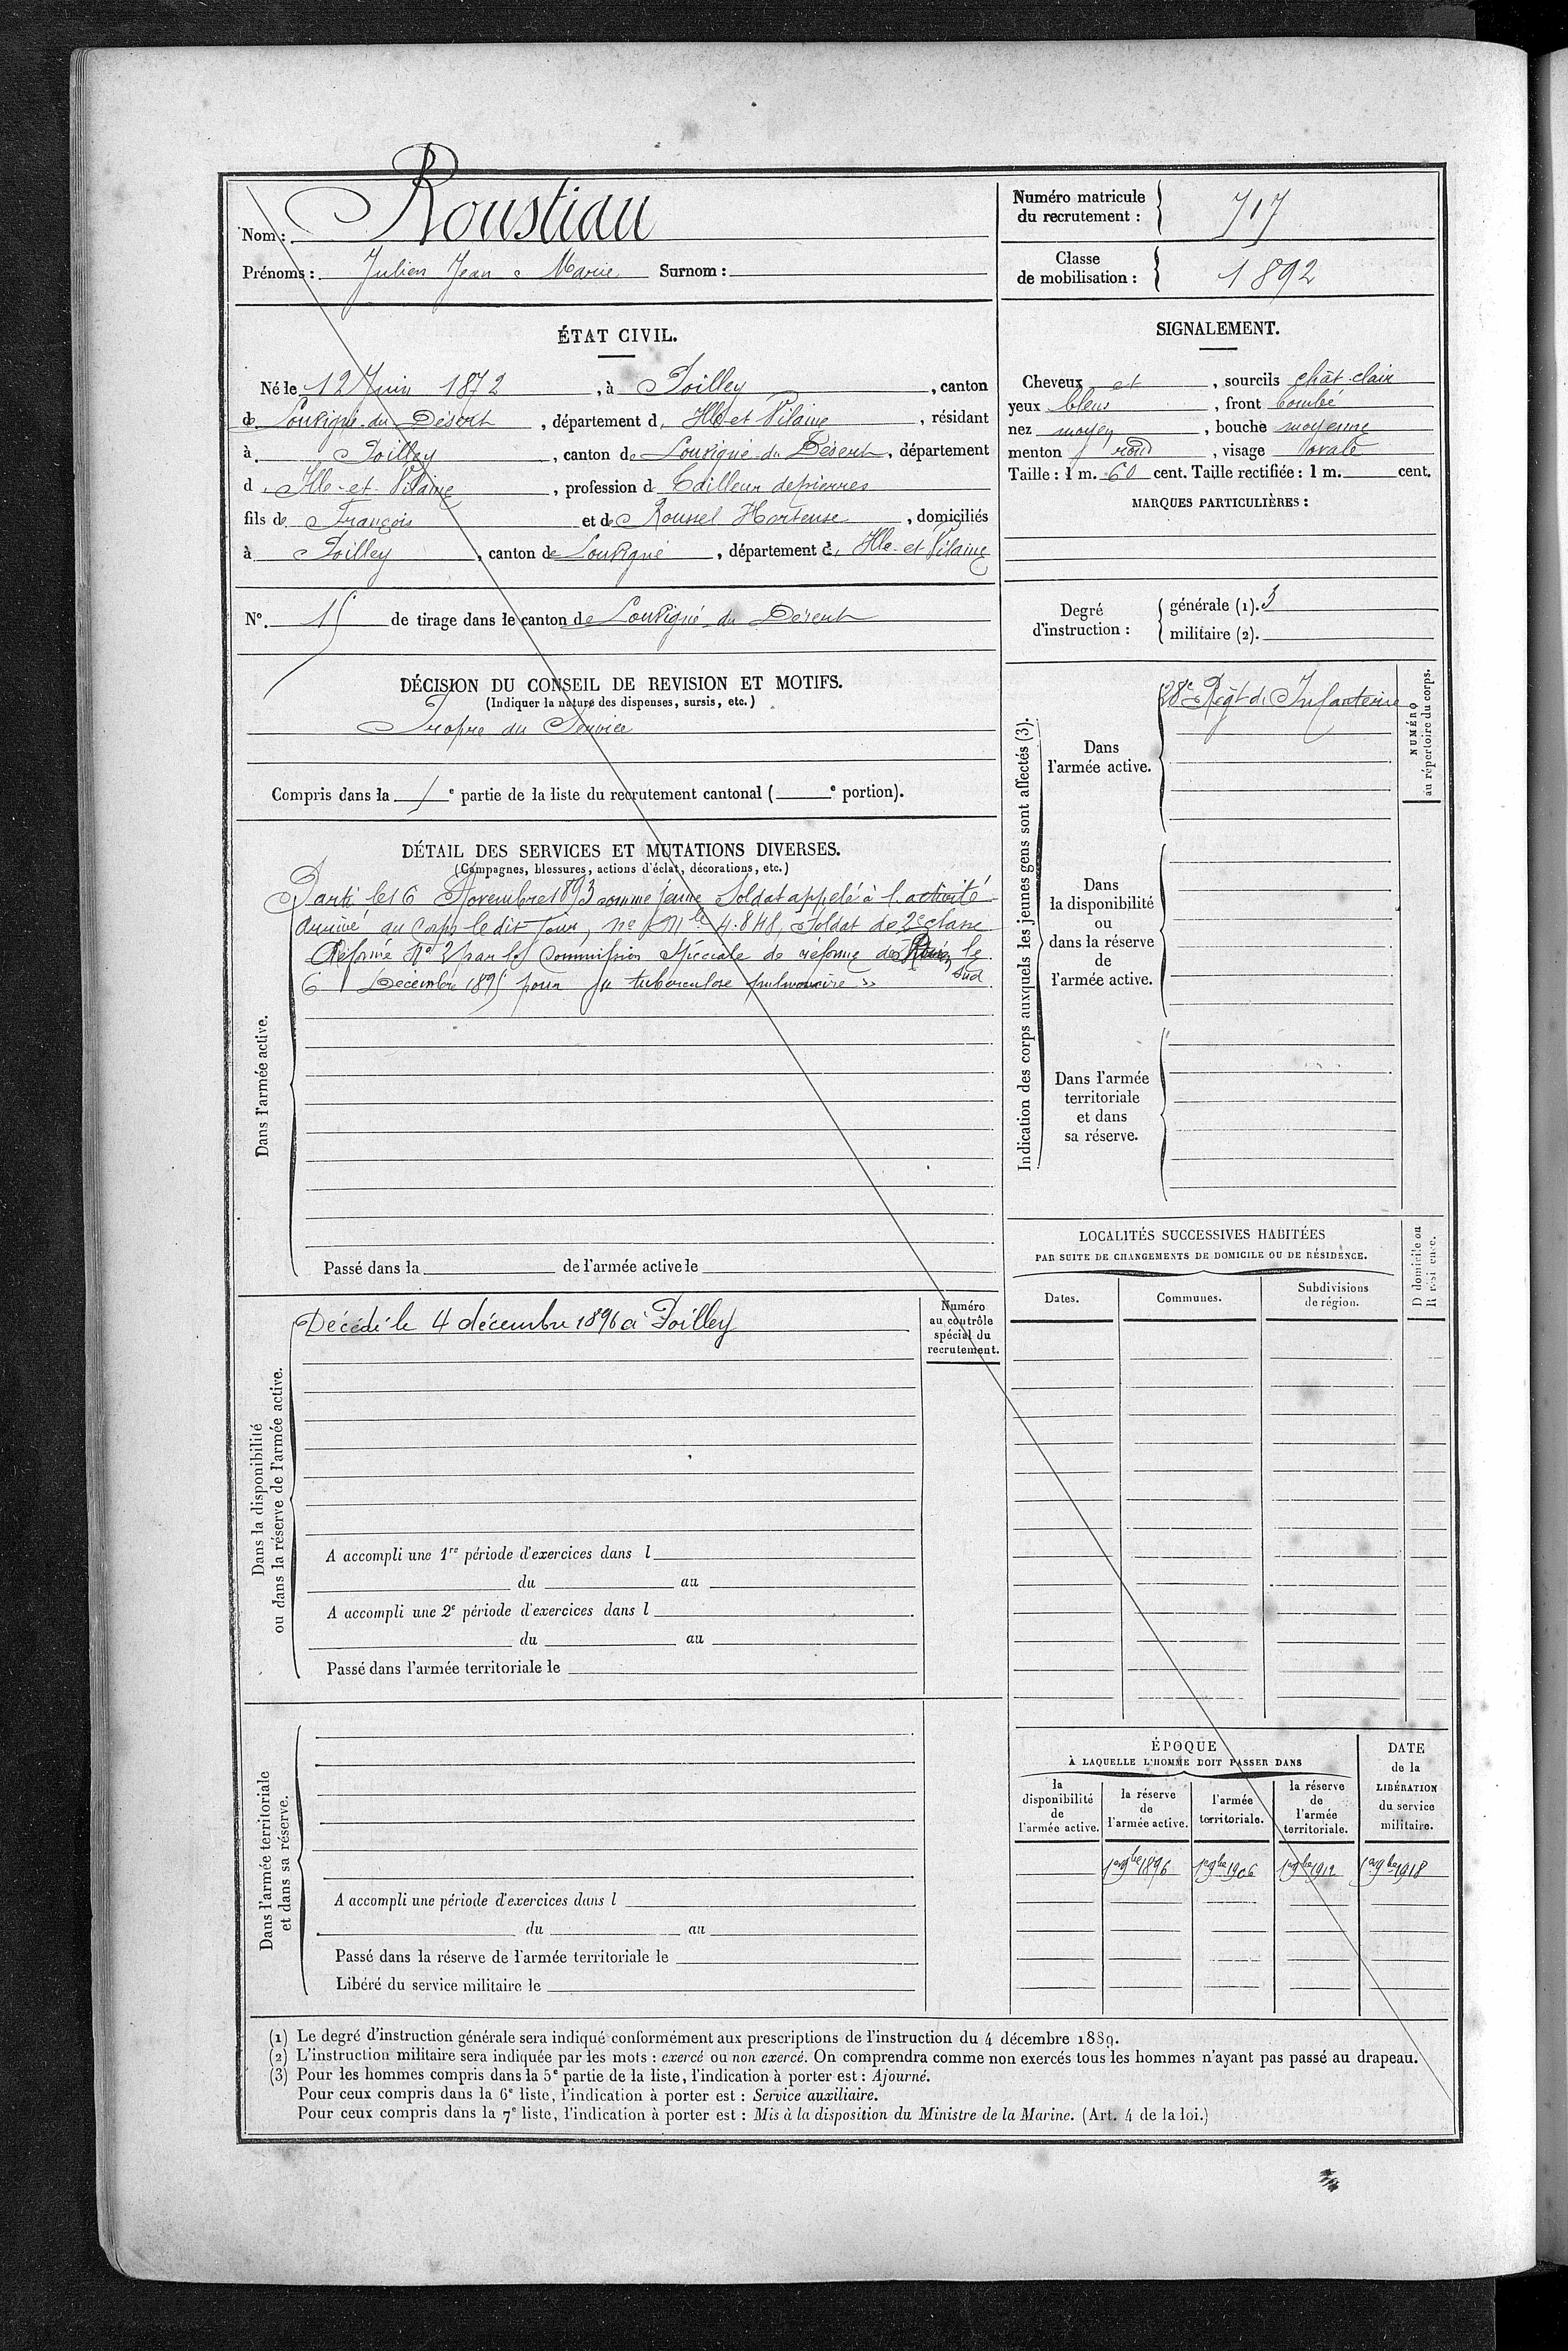 Nom : Roustiau
Prénoms : Julien Jean Marie Surnom :
Numéro matricule du recrutement : 717
Classe de mobilisation : 1892
ÉTAT CIVIL.
Né le 12 Juin 1872, à Poilley, canton
de Louvigné-du-Désert, département d'Ille et Vilaine, résidant
à Poilley, canton de Louvigné du Désert, département
d'Ille-et-Vilaine, profession d Tailleur de pierres
fils de François et de Roussel Hortense, domiciliés
à Poilley, canton de Louvigné, département d'Ille-et-Vilaine
N° 15 de tirage dans le canton de Louvigné du Désert
SIGNALEMENT.
Cheveux et, sourcils chât clair
yeux bleus, front bombé
nez moyen, bouche moyenne
menton rond, visage ovale
Taille : 1 m. 60 cent. Taille rectifiée : 1 m. cent.
MARQUES PARTICULIÈRES :
Degré d'instruction : générale (1). 3
militaire (2).
DÉCISION DU CONSEIL DE REVISION ET MOTIFS.
(Indiquer la nature des dispenses, sursis, etc.)
Propre au Service
Compris dans la 1e partie de la liste du recrutement cantonal ( e portion).
DÉTAIL DES SERVICES ET MUTATIONS DIVERSES.
(Campagnes, blessures, actions d'éclat, décorations, etc.)
Dans l'armée active.
Parti le 16 Novembre 1893 comme jeune Soldat appelé à l'activité
arrivé au Corps le dit Jour, no Mle 4.848, Soldat de 2e classe
Réformé No 2 par la Commission Spéciale de réforme de Rouen Sud le
6 Décembre 1895 pour "tuberculose pulmonaire"
Passé dans la de l'armée active le
Indication des corps auxquels les jeunes gens sont affectés (3).
NUMÉRO
au répertoire du corps.
Dans
l'armée active.
28e Régt d'Infanterie
Dans
la disponibilité
ou
dans la réserve
de
l'armée active.
Dans l'armée
territoriale
et dans
sa réserve.
LOCALITÉS SUCCESSIVES HABITÉES
PAR SUITE DE CHANGEMENTS DE DOMICILE OU DE RÉSIDENCE.
Dates.
Communes.
Subdivisions
de région.
D domicile ou
R résidence.
Dans la disponibilité
ou dans la réserve de l'armée active.
Décédé le 4 décembre 1896 à Poilley
Numéro
au contrôle
spécial du
recrutement.
A accompli une 1re période d'exercices dans l
du au
A accompli une 2e période d'exercices dans l
du au
Passé dans l'armée territoriale le
Dans l'armée territoriale
et dans sa réserve.
A accompli une période d'exercices dans l
du au
Passé dans la réserve de l'armée territoriale le
Libéré du service militaire le
ÉPOQUE
À LAQUELLE L'HOMME DOIT PASSER DANS
la
disponibilité
de
l'armée active.
la réserve
de
l'armée active.
l'armée
territoriale.
la réserve
de
l'armée
territoriale.
DATE
de la
LIBÉRATION
du service
militaire.
1er 9bre 1896 1er 9bre 1906 1er 9bre 1912 1er 9bre 1918
(1) Le degré d'instruction générale sera indiqué conformément aux prescriptions de l'instruction du 4 décembre 1889.
(2) L'instruction militaire sera indiquée par les mots : exercé ou non exercé. On comprendra comme non exercés tous les hommes n'ayant pas passé au drapeau.
(3) Pour les hommes compris dans la 5e partie de la liste, l'indication à porter est : Ajourné.
Pour ceux compris dans la 6e liste, l'indication à porter est : Service auxiliaire.
Pour ceux compris dans la 7e liste, l'indication à porter est : Mis à la disposition du Ministre de la Marine. (Art. 4 de la loi.)